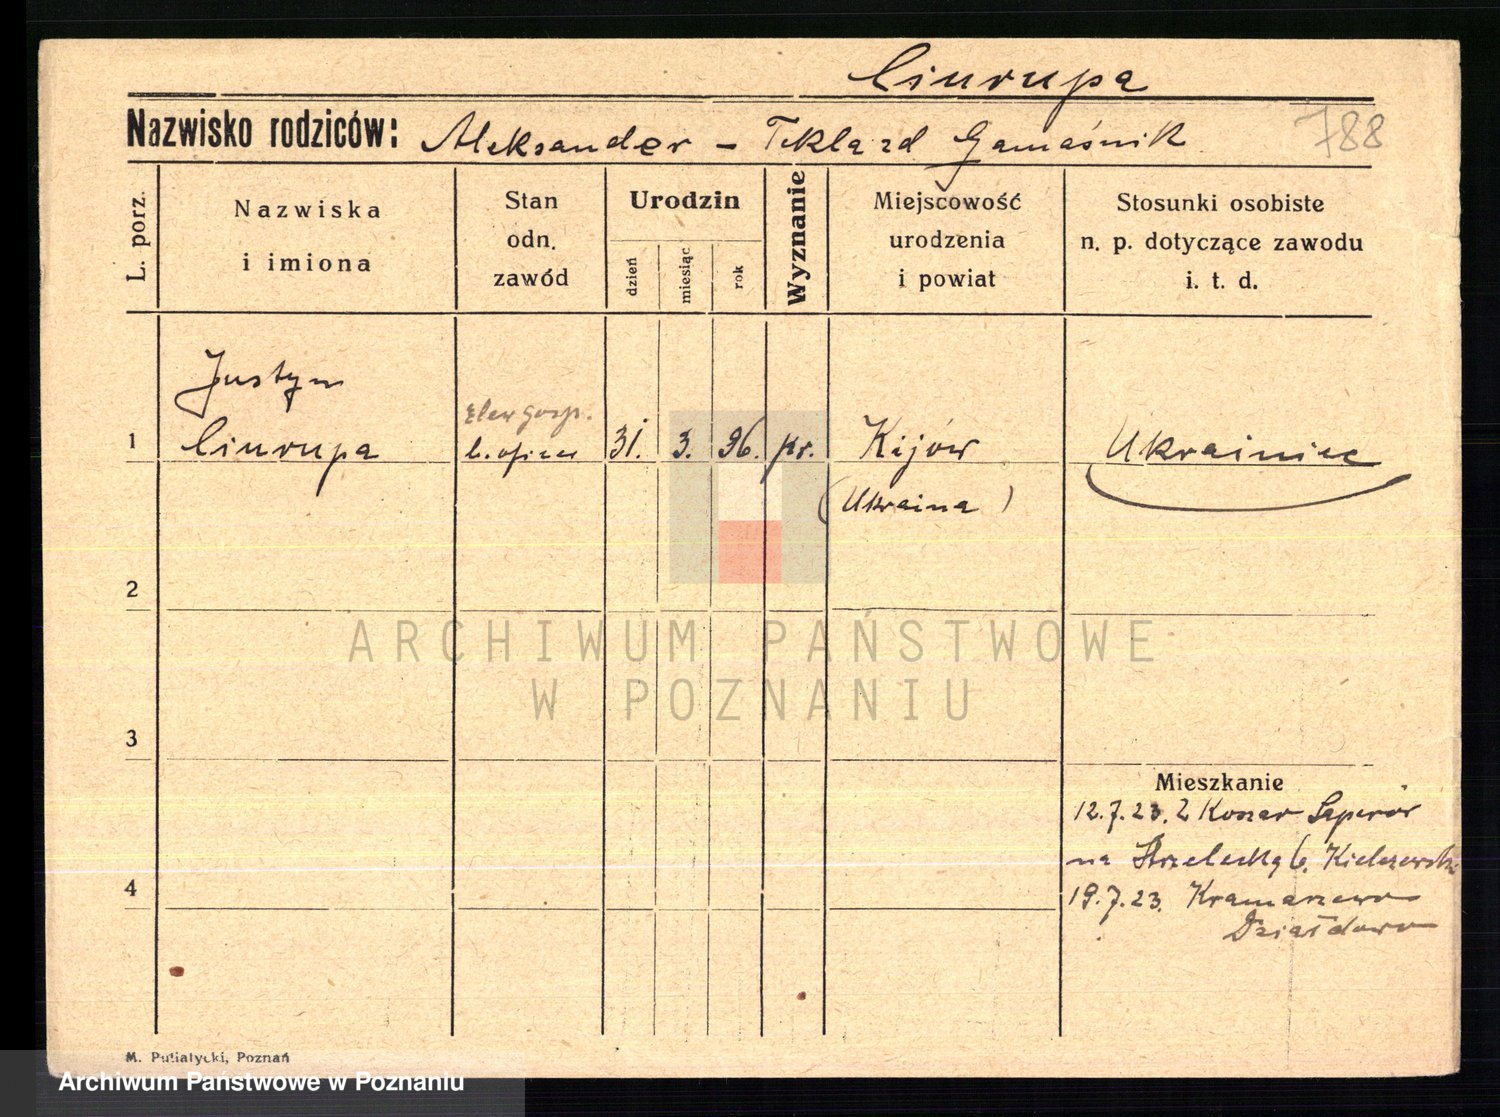 Ciurupa
Nazwisko rodziców: Aleksander – Tekla zd Gamaśnik
788
L. porz.
Nazwiska
i imiona
Stan
odn.
zawód
Urodzin
dzień
miesiąc
rok
Wyznanie
Miejscowość
urodzenia
i powiat
Stosunki osobiste
n. p. dotyczące zawodu
i. t. d.
Justyn
elew gosp.
1 Ciurupa b. oficer 31. 3. 96. pr. Kijów Ukrainiec
(Ukraina)
2
ARCHIWUM PAŃSTWOWE
W POZNANIU
3
Mieszkanie
12.7.23. z Koszar Saperów
4
na Strzelecką 6.
19.7.23. Kramarzewo
Działdowo
M. Putiatycki, Poznań
Archiwum Państwowe w Poznaniu